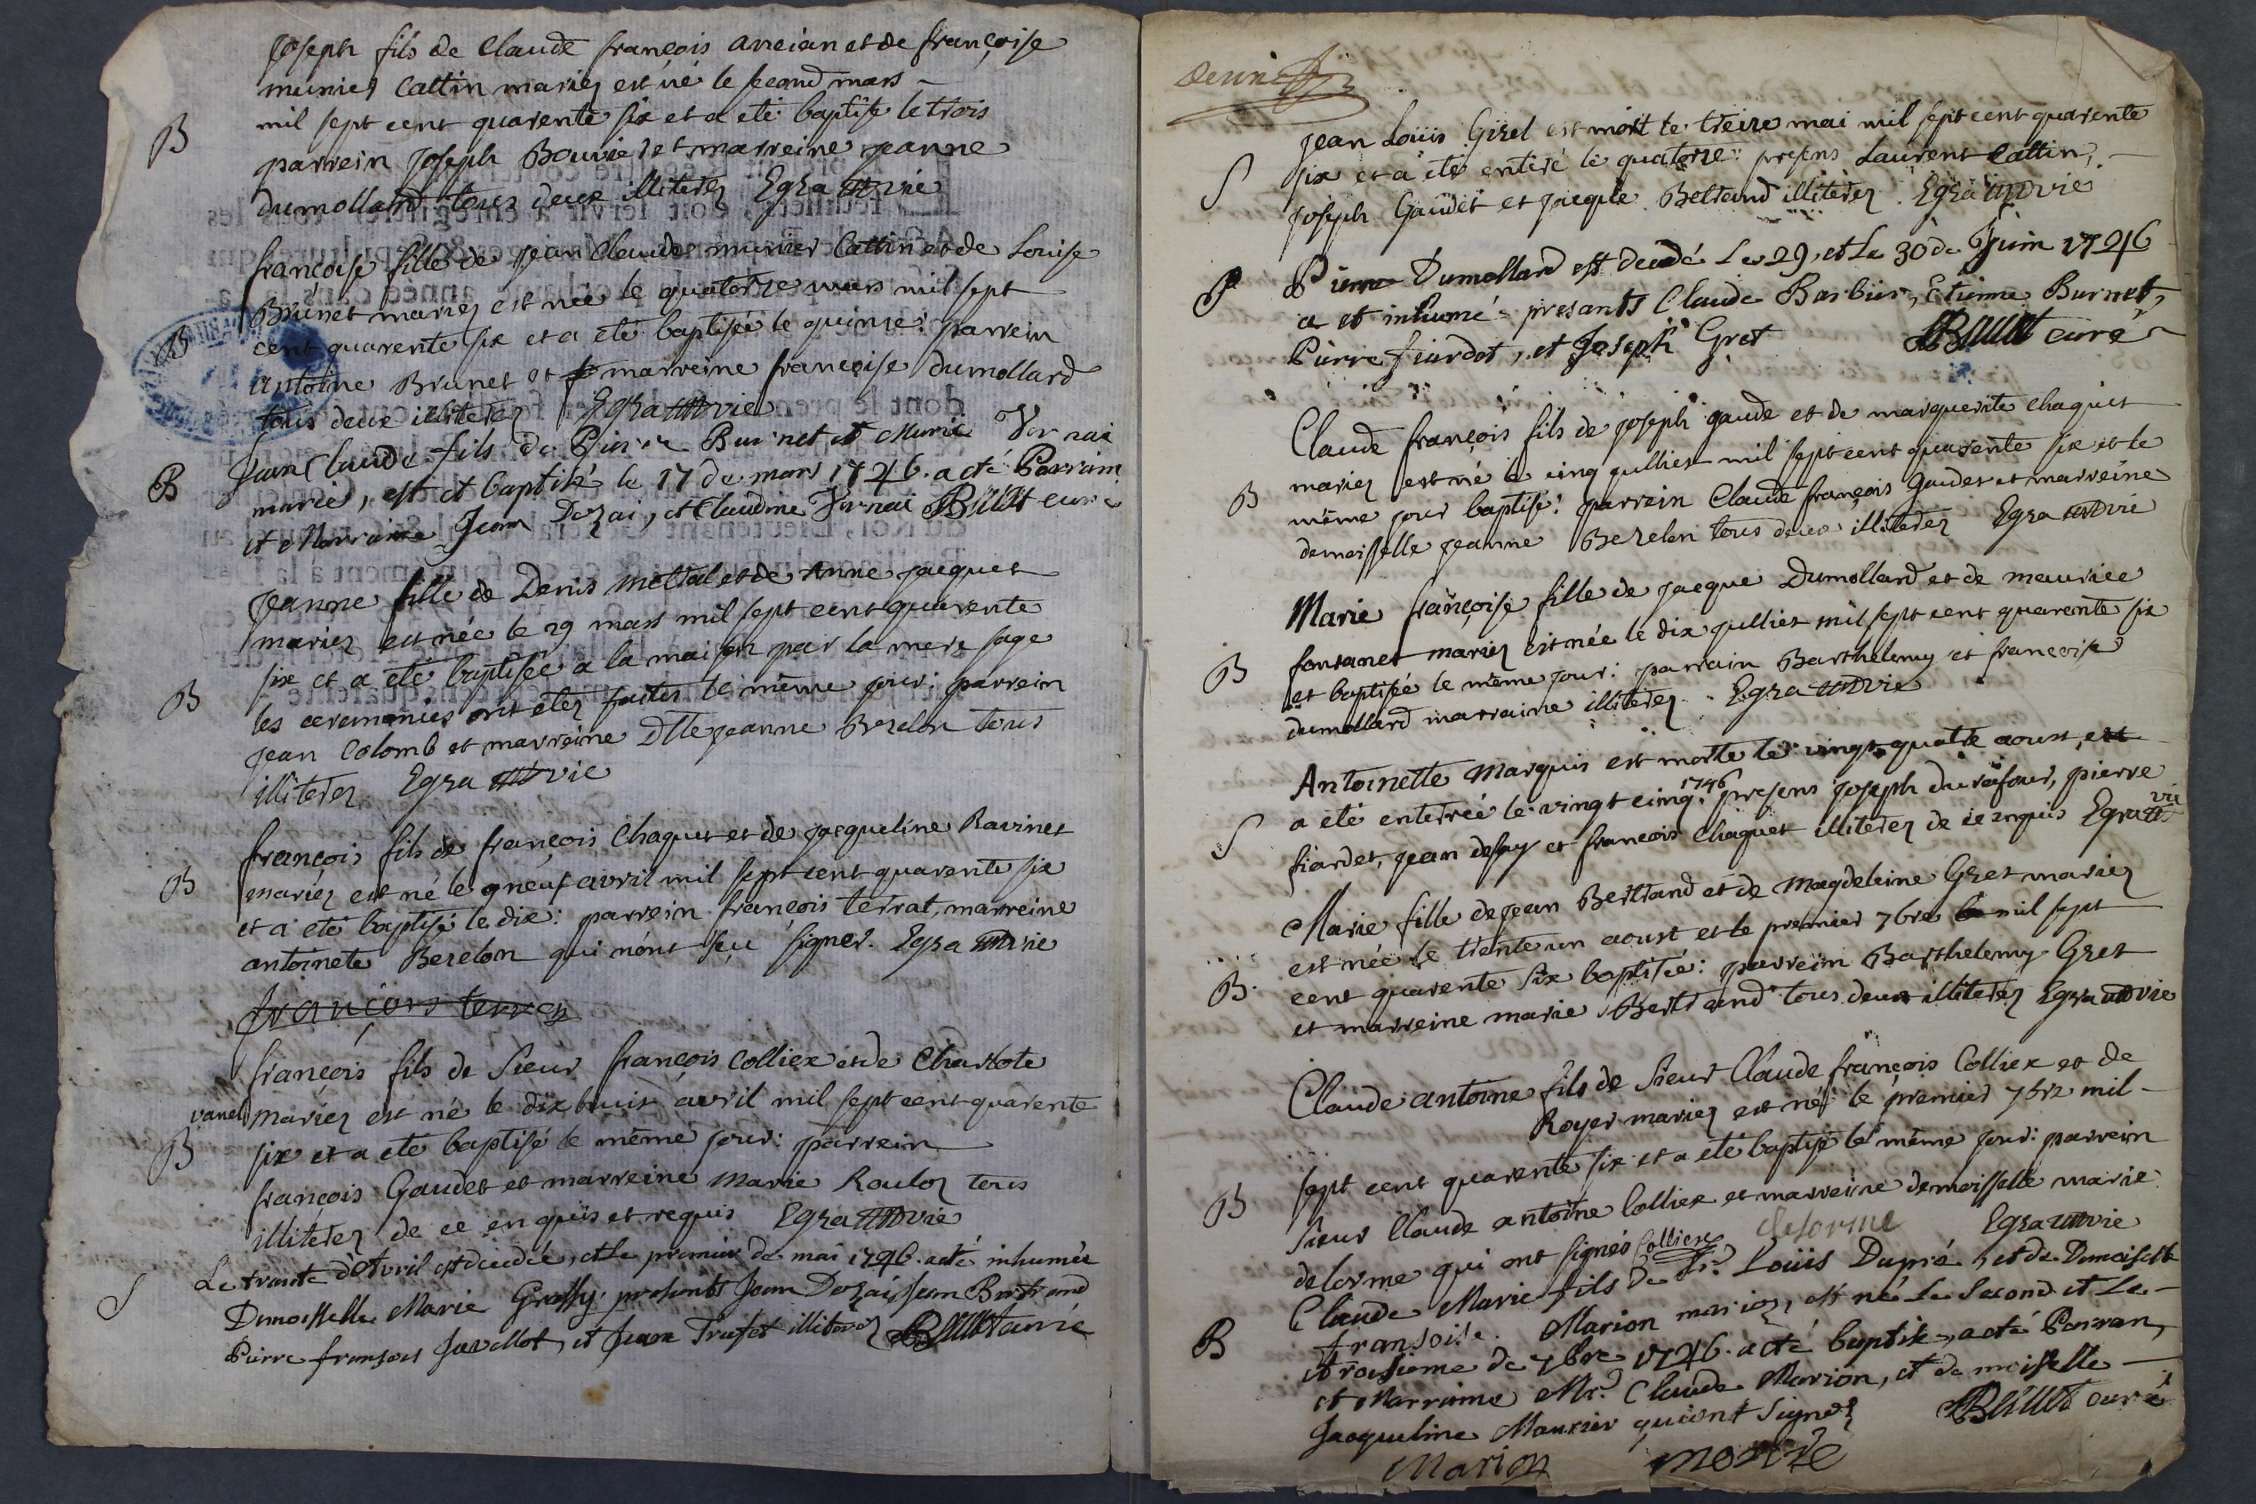 Joseph fils de Claude françois ancian et de françoise
munier Cattin mariez est né le second mars
mil sept cent quarente six et a eté baptisé le trois
B
parrein Joseph Bouvier et marreine jeanne
dumollard tous deux illiterez Egraz vic
françoise fille de jean Claude munier Cattin et de Louise
Brunet mariez est née le quatorze mars mil sept
B
cent quarente six et a eté baptisée le quinze: parrein
antoine Brunet et marreine françoise dumollard
tous deux illiterez Egraz vic
Jean Claude fils de Pierre Burnet et Marie Vernai
B
marié, est et baptisé le 17 de mars 1746. a eté Parrain
et Marraine Jean Dezai, et Claudine Vernai curé
jeanne fille de Denis mettal et de Anne jacquet
mariez est née le 29 mars mil sept cent quarente
six et a eté baptisée a la maison par la mere sage
B
les ceremonies ont etez faites le même jour: parrein
jean Colomb et marreine Dlle jeanne Bezelon tous
illiterez Egraz vic
françois fils de françois Chaquet et de jacqueline Ravinet
B
mariez est né le neuf avril mil sept cent quarente six
et a eté baptisé le dix: parrein françois terrat, marreine
antoinete Bezelon qui n'ont sçu signer. Egraz vic
françois terrez
françois fils de Sieur françois Colliex et de Charlote
vanel mariez est né le dix huit avril mil sept cent quarente
B
six et a eté baptisé le même jour: parrein
françois Gaudet et marreine Marie Rouloz tous
illiterez de ce enquis et requis Egraz vic
Le trante d'Avril est decedée, et Le premier de mai 1746. a eté inhumée
S
Demoisselle Marie Grassy. presents Jean Dezai, Jean Bertrand
Pierre fransois Javellot, et Jean Trufet illiterez curé
Jean Loüis Girel est mort le treize mai mil sept cent quarente
S
six et a eté enteré le quatorze: presens Laurent Cattin,
joseph Gaudet et jacque Beltrand illiterez. Egraz vic
Pierre Dumollard est decedé Le 29, et Le 30 de Juin 1746
S
a et inhumé: presants Claude Barbier, Etienne Burnet,
Pierre fiardet, et Joseph Gret curé
Claude françois fils de joseph gaude et de marguerite Chaquet
mariez est né le cinq jullier mil sept cent quarente six et le
B
même jour baptisé: parrein Claude françois Gaudet et marreine
demoisselle jeanne Bezelon tous deux illiterez Egraz vic
Marie françoise fille de jacque Dumollard et de mauricee
fontanet mariez est née le dix jullier mil sept cent quarente six
B
et baptisée le même jour: parrain Barthelemy et françoise
dumollard marraine illiterez. Egraz vic
Antoinette Marquis est morte le vingt quatre aoust, et
a eté enterrée le vingt cinq 1746: presens joseph durafour, pierre
S
fiardet, jean desay et françois Chaquet illiterez de ce enquis Egraz vic
Marie fille de jean Bertrand et de Magdeleine Gret mariez
est née le trente un aoust et le premier 7bre mil sept
B.
cent quarente six baptisée: parrein Barthelemy Gret
et marreine marie Bertrand tous deux illiterez Egraz vic
Claude antoine fils de Sieur Claude françois Colliex et de
Royer mariez est né le premier 7bre mil
sept cent quarente six et a eté baptisé le même jour: parrein
B
Sieur Claude antoine Colliex et marreine demoisselle marie
delorme qui ont signés Colliex delorme Egraz vic
Claude Marie fils de Sr. Loüis Dupré, et de Demoiselle
Fransoise Marion mariez, est né Le Second et Le
B
troisieme de 7bre 1746. a eté baptisé, a eté Parran,
et Marraine Mr. Claude Marion, et demoiselle
Jacqueline Mausier qui ont signez curé
Marion